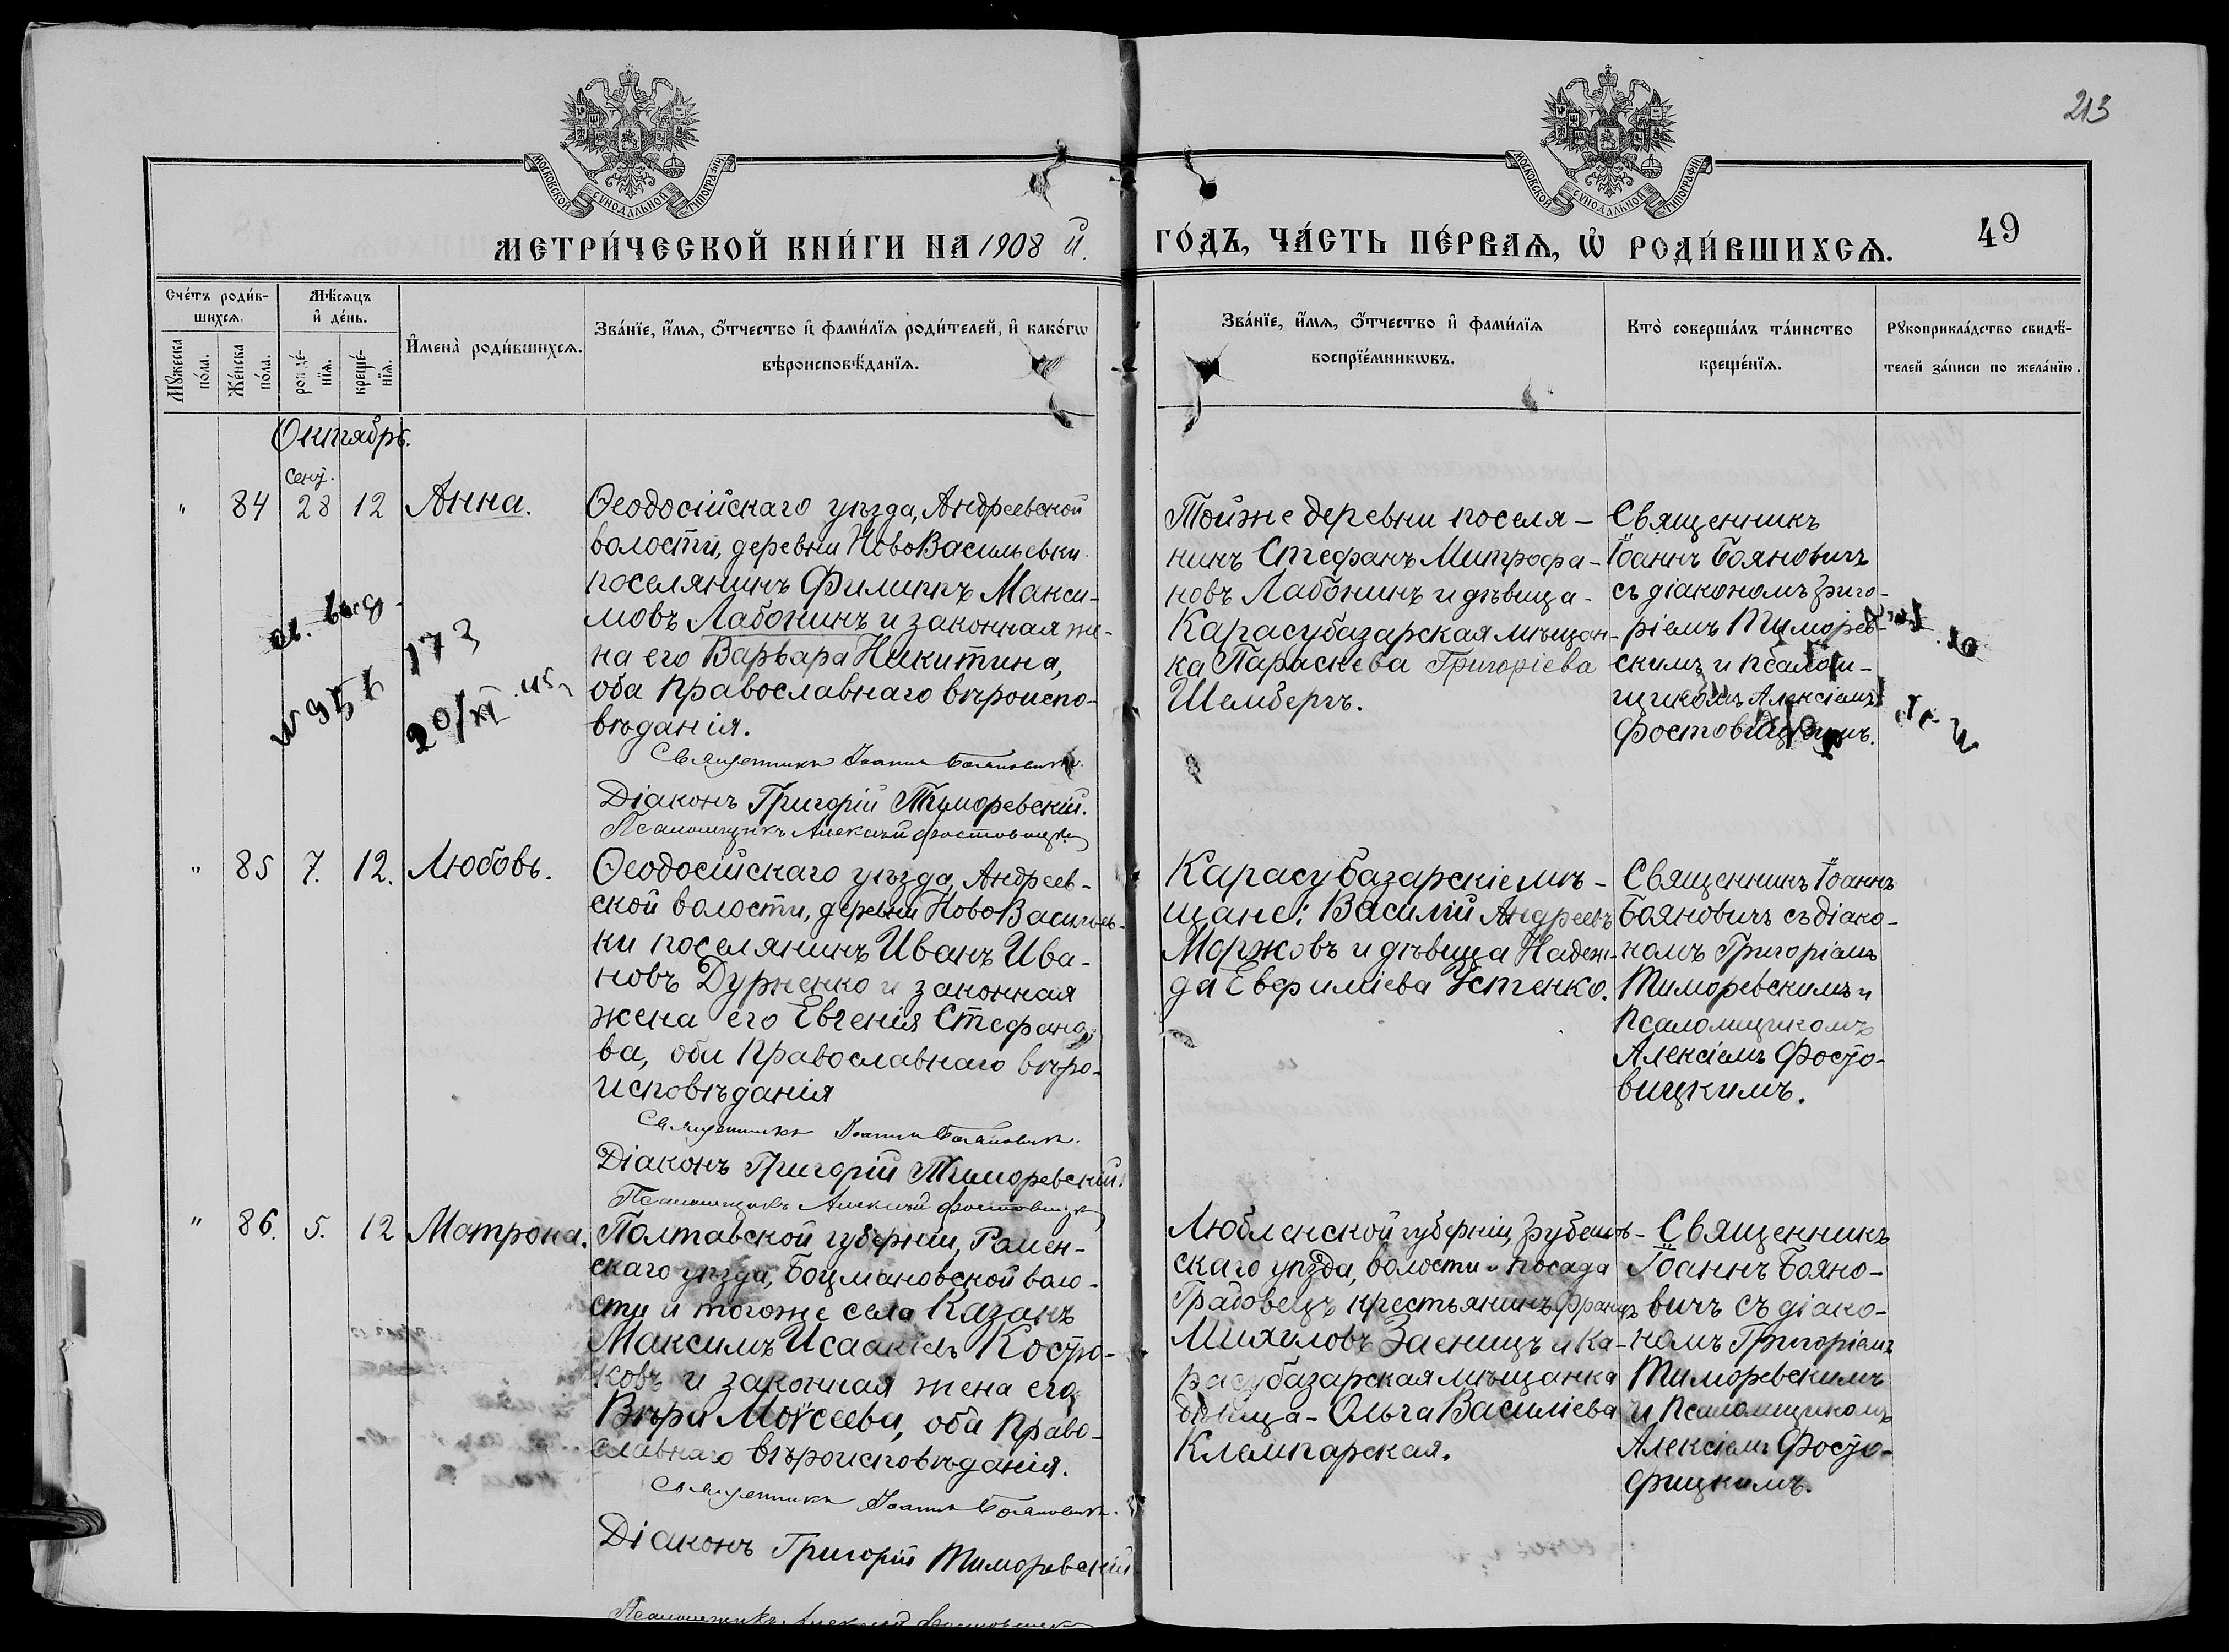 213
МОСКОВСКОЙ СѴНОДАЛЬНОЙ ТИПОГРАФІИ
МОСКОВСКОЙ СѴНОДАЛЬНОЙ ТИПОГРАФІИ
МЕТРИ́ЧЕСКОЙ КНИ́ГИ НА 1908 й.
ГО́ДЪ, ЧА́СТЬ ПЕ́РВАѦ, Ѽ РОДИ́ВШИХСѦ.
49
Сче́тъ роди́в-
шихсѧ.
Мѣ́сѧцъ
и҆ де́нь.
Мꙋ́жеска
по́ла.
Же́нска
по́ла.
рожде́-
нїѧ.
креще́-
нїѧ.
И҆мена̀ роди́вшихсѧ.
Зва́нїе, и҆́мѧ, ѻ҆́тчество и҆ фами́лїѧ роди́телей, и҆ како́гѡ
вѣроисповѣ́данїѧ.
Зва́нїе, и҆́мѧ, ѻ҆́тчество и҆ фами́лїѧ
воспрїе́мникѡвъ.
Кто̀ соверша́лъ та́инство
креще́нїѧ.
Рꙋкоприкла́дство свидѣ́-
телей за́писи по жела́нїю.
Октябрь.
Сент.
" 84 28 12 Анна.
Ѳеодосійскаго уѣзда, Андреевской
волости, деревни НовоВасильевки
поселянинъ Филиппъ Макси-
мовъ Лабонинъ и законная же-
на его Варвара Никитина,
оба православнаго вѣроиспо-
вѣданія.
Священникъ Іоаннъ Бояновичъ.
Діаконъ Григорій Тиморевскій.
Псаломщикъ Алексій Фостовицкій
173
20/XI
Тойже деревни поселя-
нинъ Стефанъ Митрофа-
новъ Лабонинъ и дѣвица-
Карасубазарская мѣщан-
ка Параскева Григоріева
Шембергъ.
Священникъ
Іоаннъ Бояновичъ
съ діакономъ Григо-
ріемъ Тиморев-
скимъ и псалом-
щикомъ Алексіемъ
Фостовицкимъ.
" 85 7. 12. Любовь.
Ѳеодосійскаго уѣзда, Андреев-
ской волости, деревни НовоВасильев-
ки поселянинъ Иванъ Ива-
новъ Дурненко и законная
жена его Евгенія Стефано-
ва, оба православнаго вѣро-
исповѣданія
Священникъ Іоаннъ Бояновичъ.
Діаконъ Григорій Тиморевскій.
Псаломщикъ Алексій Фостовицкій
Карасубазарскіе мѣ-
щане: Василій Андреевъ
Моржовъ и дѣвица Надеж-
да Евфиміева Устенко.
Священникъ Іоаннъ
Бояновичъ съ діако-
номъ Григоріемъ
Тиморевскимъ и
псаломщикомъ
Алексіемъ Фосто-
вицкимъ.
" 86. 5. 12 Матрона.
Полтавской губерніи, Ромен-
скаго уѣзда, Боцмановской воло-
сти и тогоже села Казакъ
Максимъ Исаакіевъ Костю-
ковъ и законная жена его
Вѣра Моѵсеева, оба право-
славнаго вѣроисповѣданія.
Священникъ Іоаннъ Бояновичъ.
Діаконъ Григорій Тиморевскій.
Псаломщикъ Алексій Фостовицкій
Любленской губерніи, Грубешов-
скаго уѣзда, волости и посада
Градовецъ крестьянинъ Францъ
Михиловъ Заеницъ и Ка-
расубазарская мѣщанка
дѣвица - Ольга Василіева
Клемпарская.
Священникъ
Іоаннъ Бояно-
вичъ съ діако-
номъ Григоріемъ
Тиморевскимъ
и псаломщикомъ
Алексіемъ Фосто-
фицкимъ.